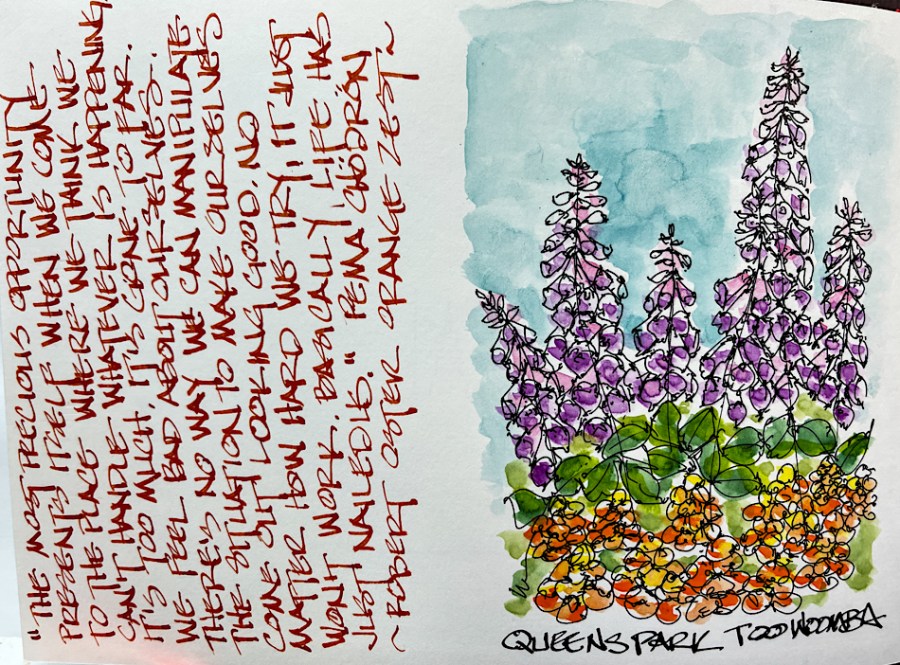 "THE MOST PRECIOUS OPPORTUNITY
PRESENTS ITSELF WHEN WE COME
TO THE PLACE WHERE WE THINK WE
CAN'T HANDLE WHATEVER IS HAPPENING.
IT'S TOO MUCH. IT'S GONE TO FAR.
WE FEEL BAD ABOUT OURSELVES.
THERE'S NO WAY WE CAN MANIPULATE
THE SITUATION TO MAKE OURSELVES
COME OUT LOOKING GOOD. NO
MATTER HOW HARD WE TRY, IT JUST
WON'T WORK. BASICALLY LIFE HAS
JUST NAILED US." PEMA CHÖDRÖN
~ROBERT OSTER ORANGE ZEST~
QUEENS PARK TOOWOOMBA